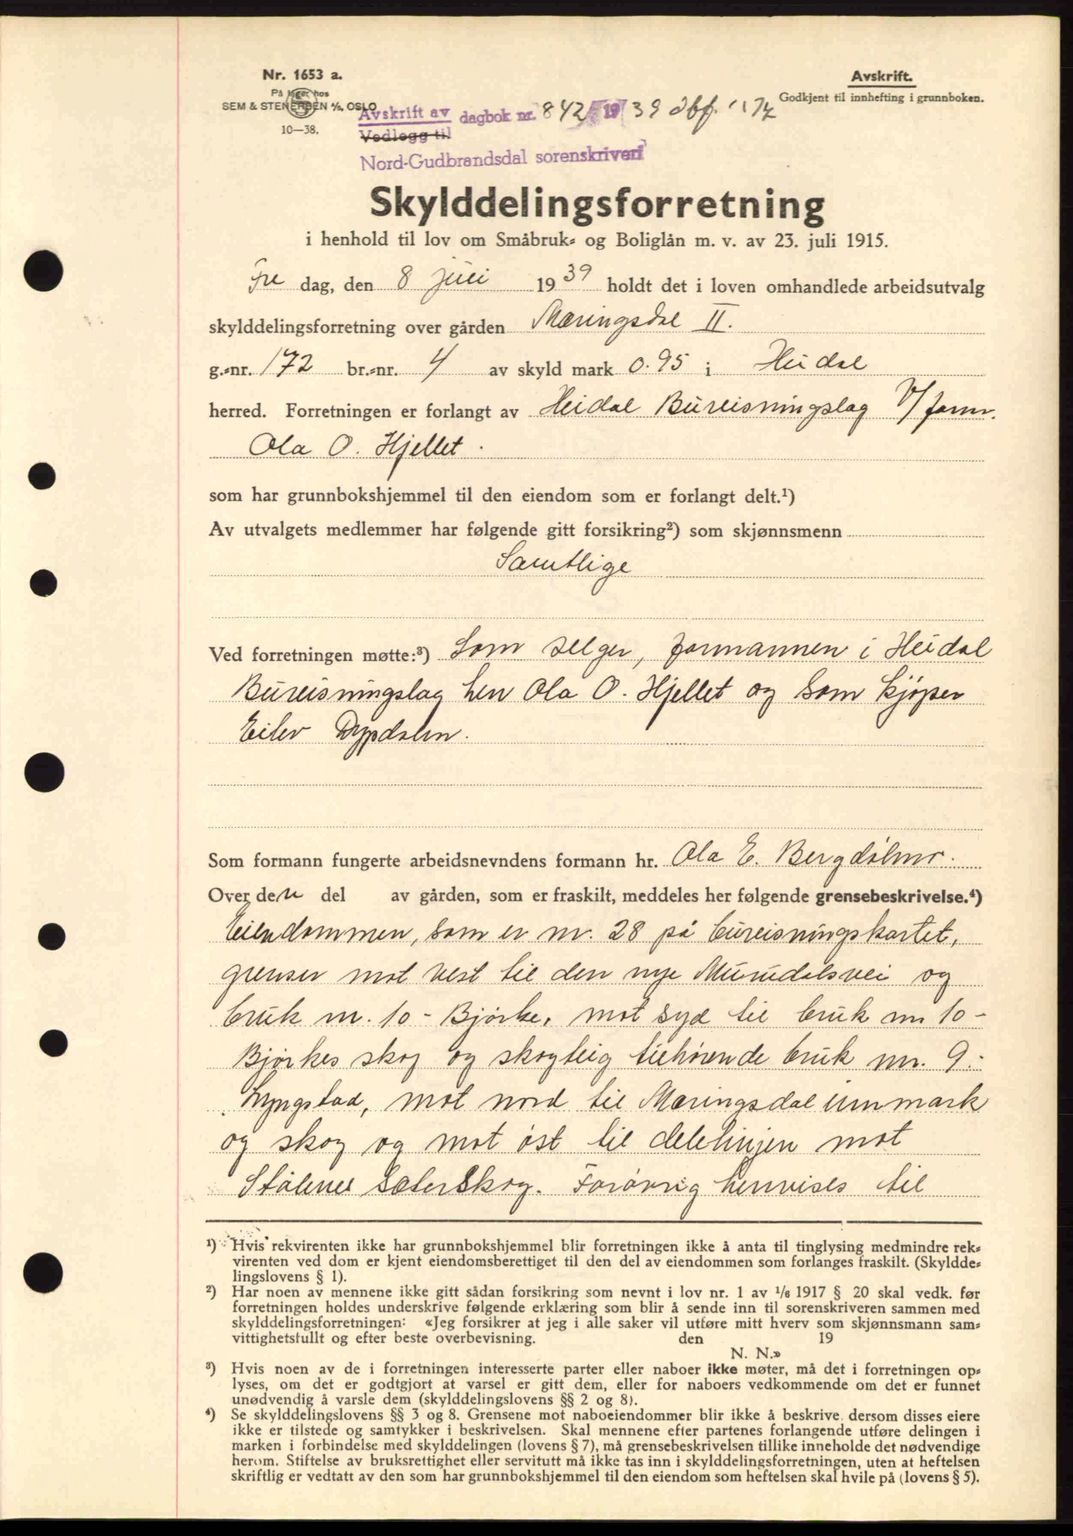 Nr. 1653 a.
På lager hos
SEM & STENERSEN A/S, OSLO
10—38.
Avskrift.
Godkjent til innhefting i grunnboken.
Avskrift av dagbok nr. 842 1939
Vedlegg til
Nord-Gudbrandsdal sorenskriveri
Skylddelingsforretning
i henhold til lov om Småbruk- og Boliglån m. v. av 23. juli 1915.
Fre dag, den 8 juli 1939 holdt det i loven omhandlede arbeidsutvalg
skylddelingsforretning over gården Mæringsdal II.
g.-nr. 172 br.-nr. 4 av skyld mark 0.95 i Heidal
herred. Forretningen er forlangt av Heidal Bureisningslag v/ form.
Ola O. Hjellet.
som har grunnbokshjemmel til den eiendom som er forlangt delt.¹)
Av utvalgets medlemmer har følgende gitt forsikring²) som skjønnsmenn
Samtlige
Ved forretningen møtte:³) Som selger, formannen i Heidal
Bureisningslag hen Ola O. Hjellet og som kjøper
Eilev Dypdalen.
Som formann fungerte arbeidsnevndens formann hr. Ola E. Bergdølmo.
Over den del av gården, som er fraskilt, meddeles her følgende grensebeskrivelse.⁴)
Eiendommen, som er nr. 28 på bureisningskartet,
grenser mot vest til den nye Murudalsvei og
bruk nr. 10 - Bjørke, mot syd til bruk nr 10 -
Bjørkes skog og skogteig tilhørende bruk nr. 9:
Lyngstad, mot nord til Mæringsdal innmark
og skog og mot øst til delelinjen mot
Stålenes Sæterskog. Forøvrig henvises til
¹) Hvis rekvirenten ikke har grunnbokshjemmel blir forretningen ikke å anta til tinglysing medmindre rek-
virenten ved dom er kjent eiendomsberettiget til den del av eiendommen som forlanges fraskilt. (Skyldde-
lingslovens § 1).
²) Har noen av mennene ikke gitt sådan forsikring som nevnt i lov nr. 1 av 1/6 1917 § 20 skal vedk. før
forretningen holdes underskrive følgende erklæring som blir å sende inn til sorenskriveren sammen med
skylddelingsforretningen: «Jeg forsikrer at jeg i alle saker vil utføre mitt hverv som skjønnsmann sam-
vittighetsfullt og efter beste overbevisning. den 19
N. N.»
³) Hvis noen av de i forretningen interesserte parter eller naboer ikke møter, må det i forretningen op-
lyses, om det er godtgjort at varsel er gitt dem, eller for naboers vedkommende om det er funnet
unødvendig å varsle dem (skylddelingslovens §§ 2 og 8).
⁴) Se skylddelingslovens §§ 3 og 8. Grensene mot naboeiendommer blir ikke å beskrive dersom disses eiere
ikke er tilstede og samtykker i beskrivelsen. Skal mennene efter partenes forlangende utføre delingen i
marken i forbindelse med skylddelingen (lovens § 7), må grensebeskrivelsen tillike inneholde det nødvendige
herom. Stiftelse av bruksrettighet eller servitutt må ikke tas inn i skylddelingsforretningen, uten at heftelsen
skriftlig er vedtatt av den som har grunnbokshjemmel til den eiendom som heftelsen skal hvile på (lovens § 5).